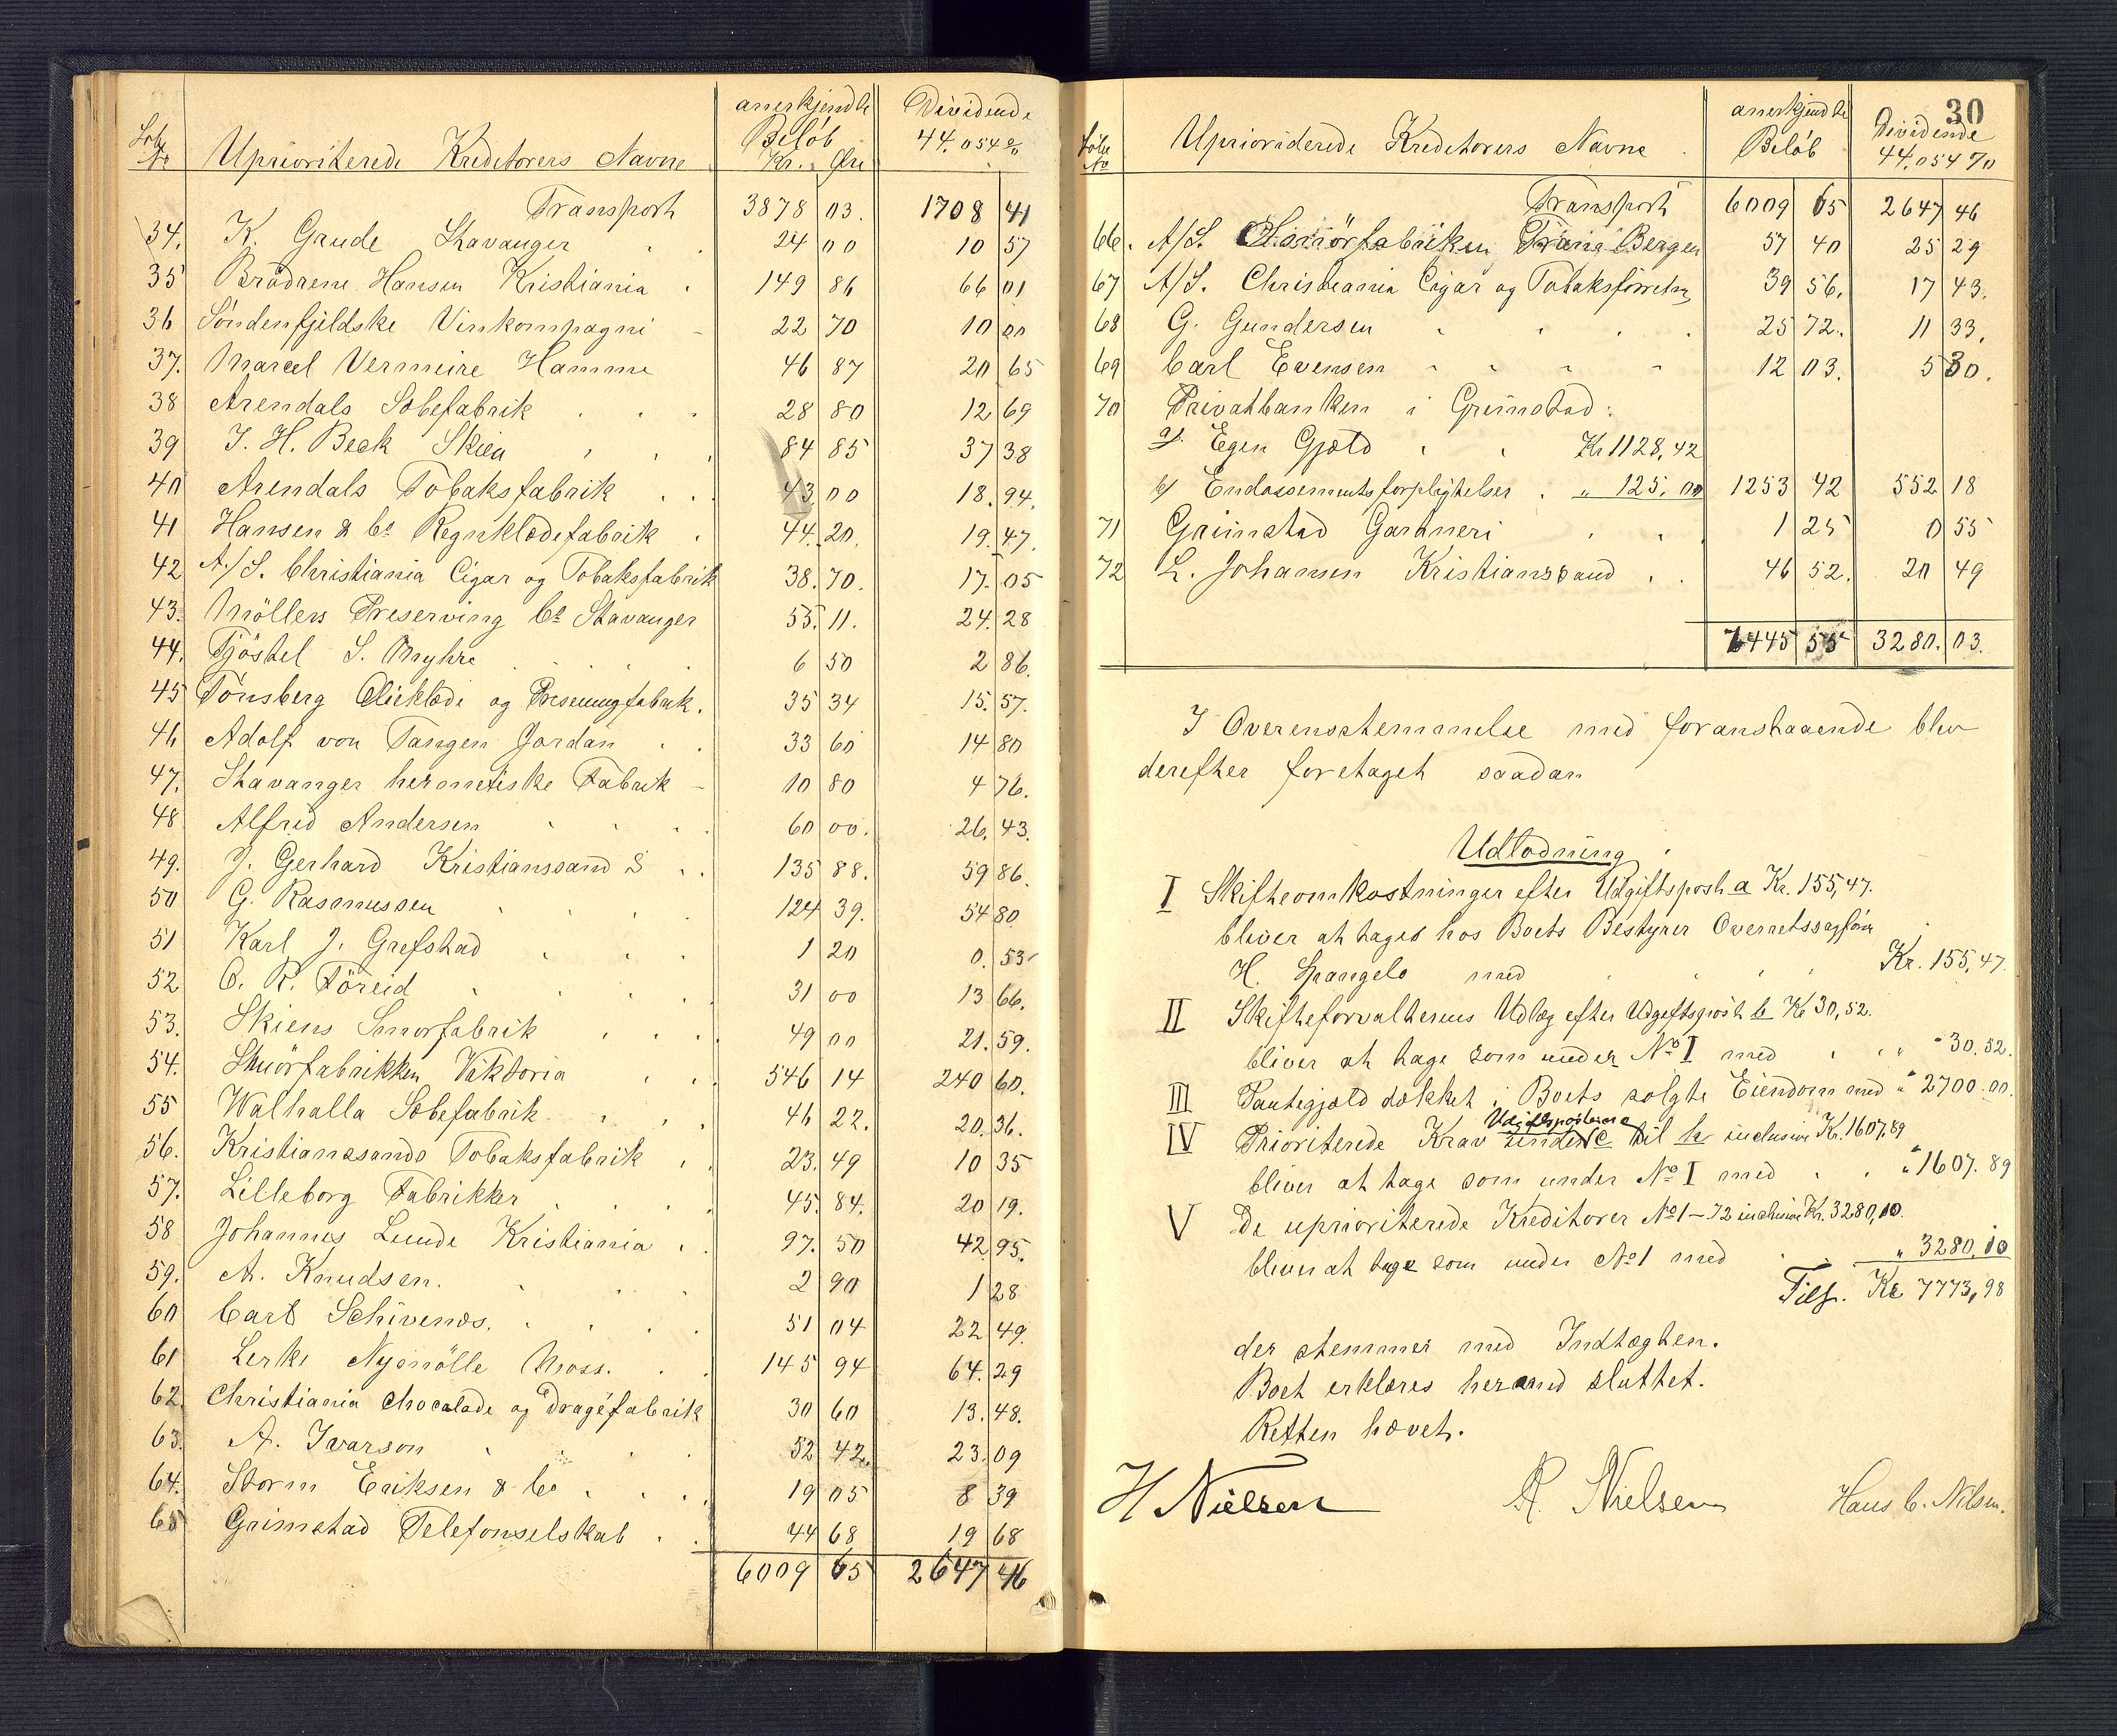 Løbe No Uprioriterede Kreditorers Navne anerkjendte Beløb Kr. Øre Dividende 44.054 %
Transport 3878 03. 1708 41
34. K. Grude Stavanger 24 00 10 57
35 Brødrene Hansen Kristiania 149 86 66 01
36 Søndenfjeldske Vinkompagni 22 70 10 00
37. Marcel Vermeire Hamme 46 87 20 65
38 Arendals Sæbefabrik 28 80 12 69
39 J. H. Beck Skien 84 85 37 38
40 Arendals Tobaksfabrik 43 00 18. 94.
41 Hansen & Co Regnklædefabrik 44. 20. 19. 47.
42 A./S. Christiania Cigar og Tobaksfabrik 38. 70. 17. 05
43. Möllers Preserving Co Stavanger 55. 11. 24. 28
44. Tjöstel S. Myhre 6 50 2 86.
45 Tönsberg Olieklæde og Presenningfabrik. 35 34 15. 57.
46 Adolf von Tangen Jordan 33 60 14 80
47. Stavanger hermetiske Fabrik 10 80 4 76.
48 Alfred Andersen 60 00. 26. 43.
49. J. Gerhard Kristianssand S 135 88. 59 86.
50 G. Rasmussen 124 39. 54 80
51 Karl J. Grefstad 1 20 0. 53
52 O. R. Töreid 31 00 13 66.
53. Skiens Smörfabrik 49 00 21. 59.
54. Smörfabrikken Viktoria 546 14 240 60.
55 Walhalla Sæbefabrik 46 22. 20. 36.
56. Kristianssands Tobaksfabrik 23. 49 10 35
57. Lilleborg Fabrikker 45. 84. 20 19.
58 Johannes Lunde Kristiania 97. 50 42 95.
59. A. Knudsen. 2 90 1 28
60 Carl Schivenes. 51 04 22 49.
61 Lerke Nymölle Moss. 145 94 64. 29
62. Christiania Chocolade og Dragéfabrik 30 60 13. 48.
63. A. Ivarson 52 42. 23. 09
64. Storm Eriksen & Co 19 05 8 39
65 Grimstad Telefonselskab 44 68 19 68
6009 65 2647 46
30
Løbe No Uprioriderede Kreditorers Navne anerkjendte Beløb Dividende 44.054 %
Transport 6009 65 2647 46
66. A/S. Smörfabriken Trine Bergen 57 40 25 29
67 A/S. Christiania Cigar og Tobaksforretn. 39 56. 17 43.
68 G. Gundersen 25 72. 11 33.
69 Carl Evensen 12 03. 5 30.
70 Privatbanken i Grimstad:
a/. Egen Gjæld Kr 1128,42
b/ Endossementsforpligtelser " 125,00 1253 42 552 18
71 Grimstad Gartneri 1 25 0 55
72 L. Johansen Kristianssand 46 52. 20 49
7445 55 3280. 03.
I Overensstemmelse med foranstaaende blev
derefter foretaget saadan
Udlodning
I Skifteomkostninger efter Udgiftspost a Kr. 155,47.
bliver at tages hos Boets Bestyrer Overretssagfører
H. Spangelo med Kr. 155,47.
II Skifteforvalterens Udlæg efter Udgiftspost b Kr 30,52.
bliver at tage som under No I med " 30.52.
III Pantegjæld dækket i Boets solgte Eiendom med " 2700.00.
Udgiftsposterne
IV Prioriterede Krav under c til h inclusive Kr. 1607,89
bliver at tage som under No I med " 1607.89
V De uprioriterede Kreditorer No 1-72 inclusive Kr. 3280,10.
bliver at tage som under No 1 med " 3280,10
Tils. Kr 7773,98
der stemmer med Indtægten.
Boet erklæres hermed sluttet.
Retten hævet.
H Nielsen R. Nielsen Hans C. Nilsen.